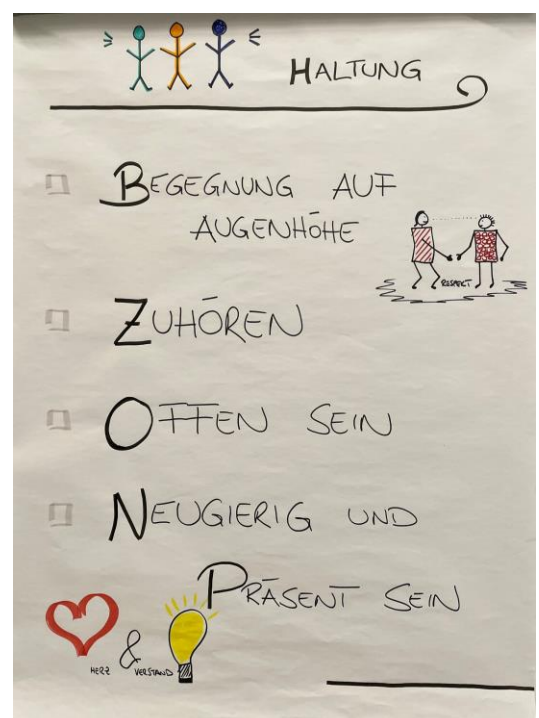 HALTUNG
BEGEGNUNG AUF
AUGENHÖHE
RESPEKT
ZUHÖREN
OFFEN SEIN
NEUGIERIG UND
PRÄSENT SEIN
HERZ & VERSTAND